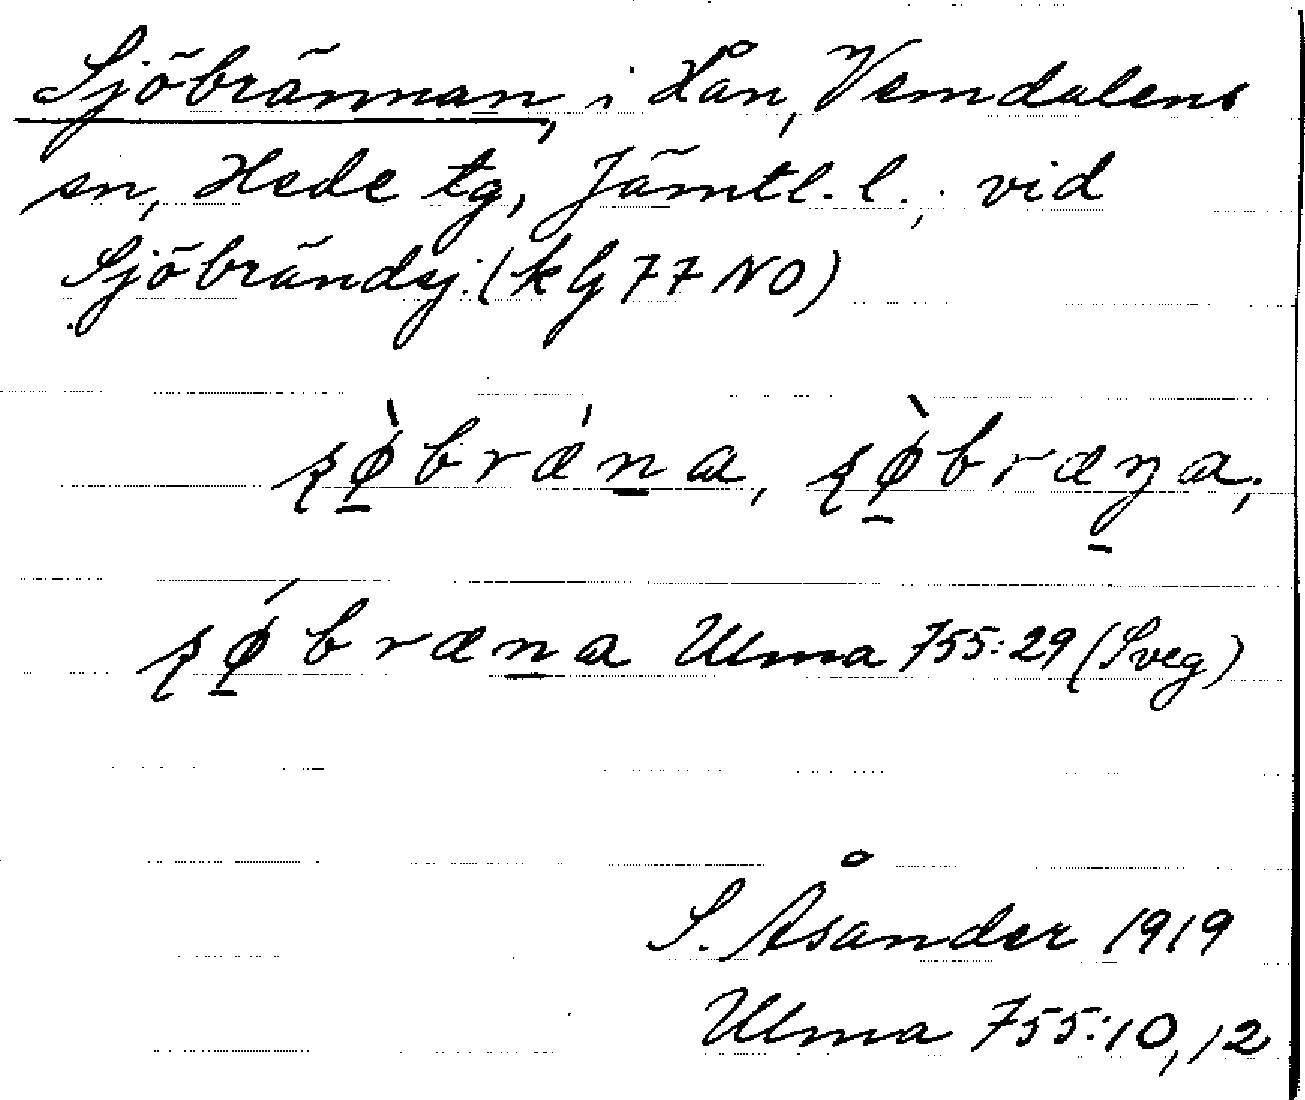 Sjöbrännan, i Xån, Vemdalens
sn, Hede tg, Jämtl. l., vid
Sjöbrändsj. (k G 77 NO)
ʂø̀bræ̀na, ʂø̀bræŋa,
ʂǿbræna Ulma 755:29 (Sveg)
S. Åsander 1919
Ulma 755:10, 12